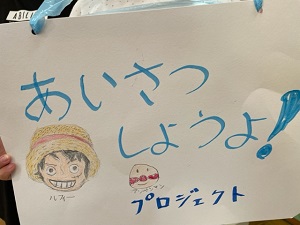 あいさつ
しようよ!
ルフィー
プロジェクト